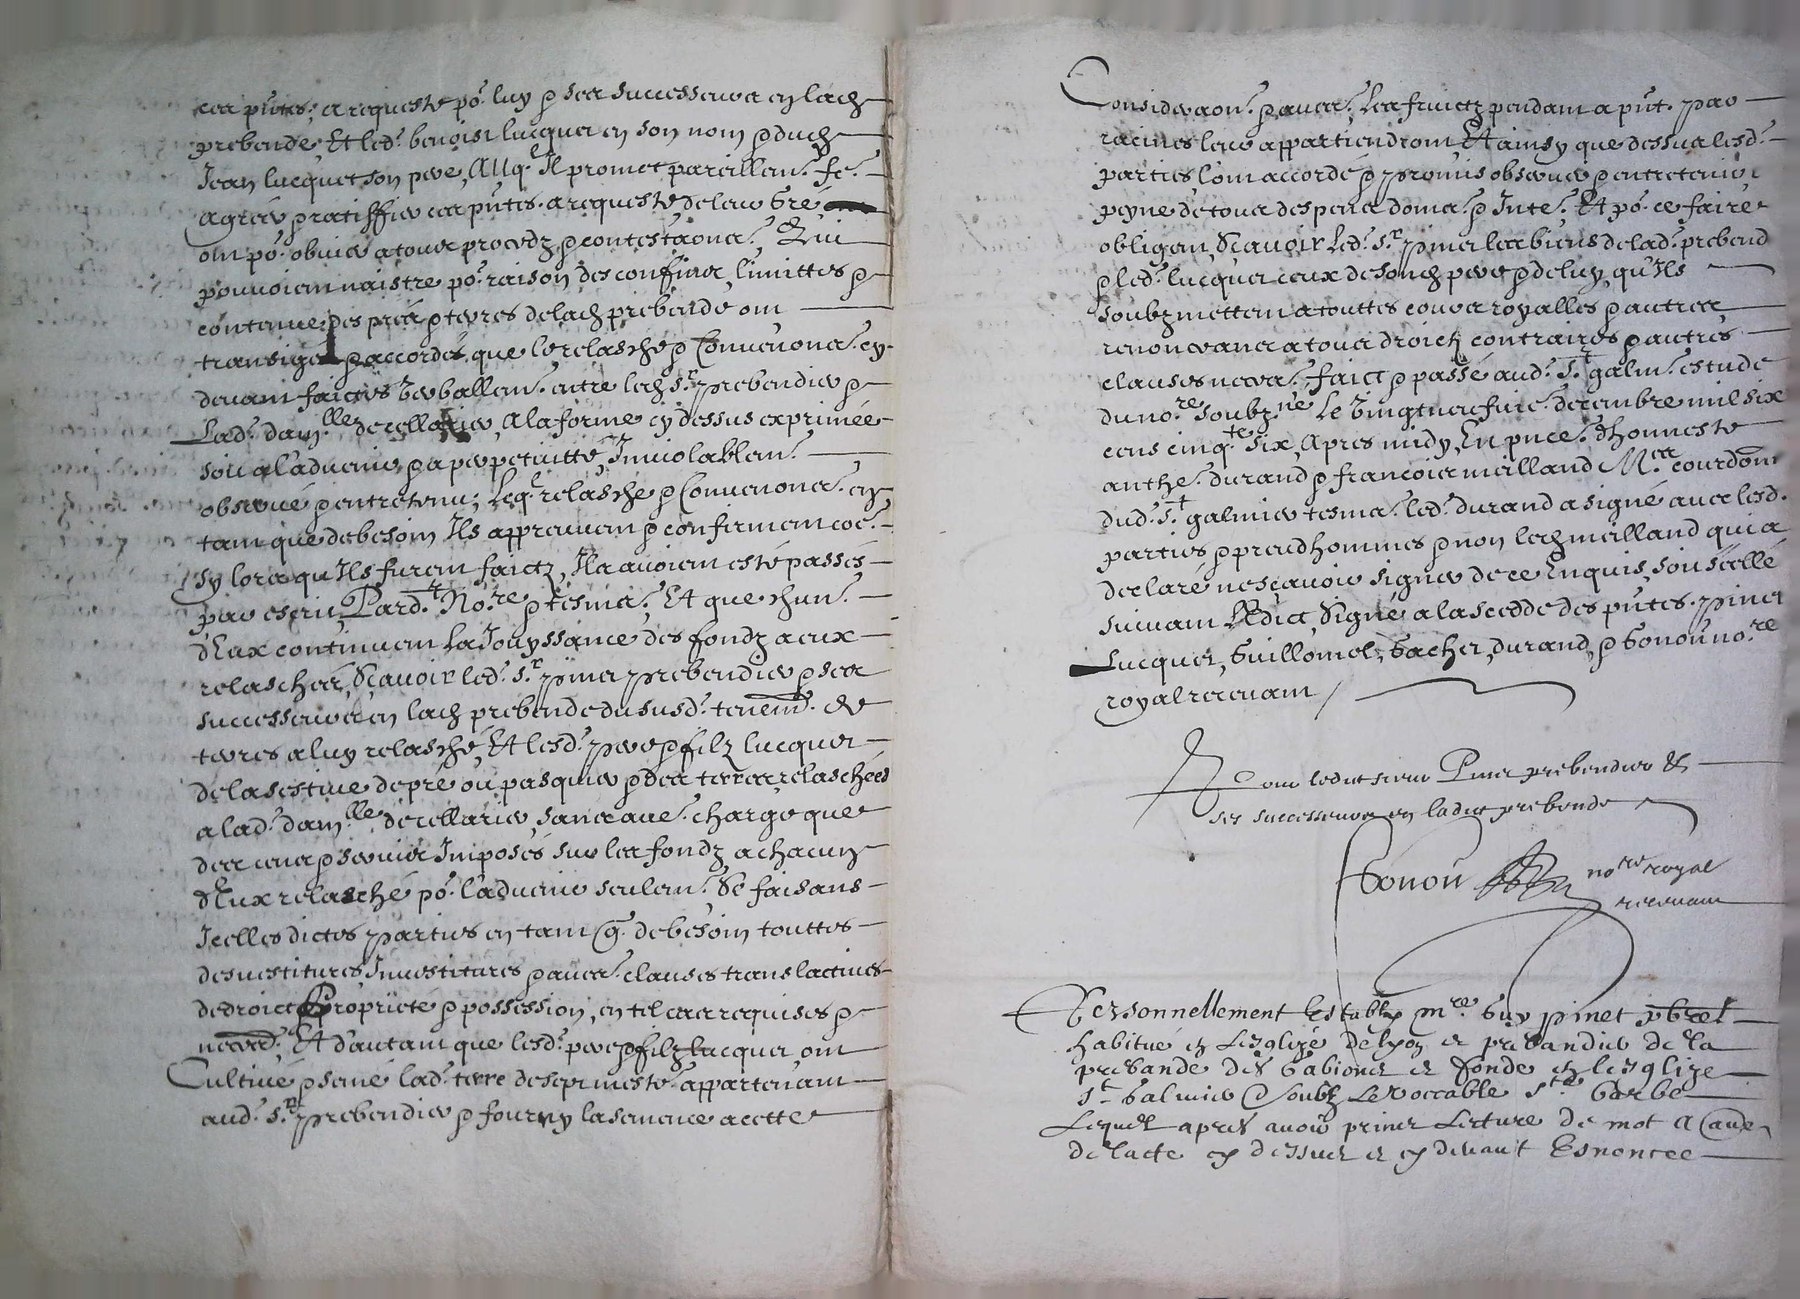 ces p̃ntes; a requeste po.r luy & ses successeurs en lad.
prebende, Et led. benoist lucquet en son nom & dud.
Jean lucquet son pere, Auq.l Il promet pareillem.t fe.
agreer & ratiffier ces p̃ntes. a requeste de leur Gré
ont po.r obvier a tous procedz & contesta͠ons. Qui
pouvoient naistre po.r raison des confins, limittes &
contenue des prés & terres de lad. prebende ont
transigé & accordé, que le relasche & Convenions. cy
devant faictes verballem.t entre led. S.r prebendier &
Lad. dam.lle de cellarier, A la forme cy dessus exprimée
soit a l'advenir & a perpetuitté, Inviolablem.t
observé & entretenu; Leq.l relasche & Convenions. en
tant que de besoin Ils appreuvent & confirment co͠e.
sy lors qu'Ils furent faictz, Ils avoient esté passés
par escrit, Pard.t No.re & tesmis. Et que chũn.
d'Eux continuent La Jouyssance des fondz a eux
relaschés, Sçavoir led. S.r pinet prebendier & ses
successeurs en lad. prebende du susd. tenem̃t. de
terres a luy relasché, Et lesd. pere & filz lucquet
de la sestive de pré ou pasquier & des terres relaschées
a lad. dam.lle de cellarier, sans aue. charge que
des cens & servis Imposés sur les fondz a chacun
d'Eux relasché po.r l'advenir seulem.t Se faisans
Icelles dictes parties en tant q. de besoin touttes
desvestitures Investitures & aues. clauses translactives
de droict Proprieté & possession, en tel cas requises &
necess. Et d'autant que lesd. pere & filz lucquet ont
Cultivé & semé lad. terre de sept mest. appartenant
aud. S.r prebendier & fourny la semence a cette
Considera͠on. & aues. Les fruictz pendant a p̃nt. par
racines leur appartiendront Et ainsy que dessus lesd.
parties l'ont accordé & promis observer & entretenir
peyne de tous despens doma. & Inte. Et po.r ce faire
obligent, Sçavoir Led. S.r pinet les biens de lad. prebend
& led. lucquet ceux de sond. pere & de luy, qu'Ils
soubzmettent a touttes cours royalles & autres
renonceans a tous droictz contraires & autres
clauses neces. faict & passé aud. S.t galm. estude
du no.re soubz.né Le Vingtneufvie. decembre mil six
cens cinq.te six, Apres midy, En p̃nce. d'honneste
anthe. durand & francois meilland M.es courdon.
dud. S.t galmier tesmis. led. durand a signé avec lesd.
parties & preudhommes & non led. meilland qui a
declaré ne sçavoir signer de ce Enquis, soit scellé
suivant L'Edict, Signé a la scedde des p̃ntes. pinet
Lucquet, Guillomel, Gachet, durand, & Gonou no.re
royal recevant /
Pour ledict sieur Pinet prebendier &
ses successeurs en ladite prebende
Gonou no.re royal
recevant
Personnellement Estably m.re Guy pinet pb̃re
habitué en L'esglize de lyon et prebandier de la
prebande des Gabiones et fonde en l'esglize
S.t Galmier Soubz Le Voccable S.te Barbe
Lequel apres avoir prinse Lecture de mot A (aue)
de l'acte cy dessus et cy devant Esnoncee